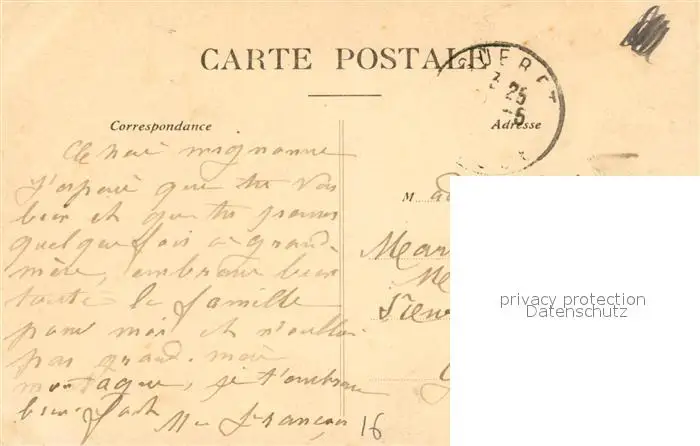 CARTE POSTALE
GUERET
25
-5
Correspondance
Adresse
mignonne
J'espère que tu vas
bien et que tu penses
quelque fois a grand-
mère, embrasse bien
toute la famille
pour moi et n'oublie
pas grand-mère
je t'embrasse
bien fort
François 16
M
Mar
privacy protection
Datenschutz